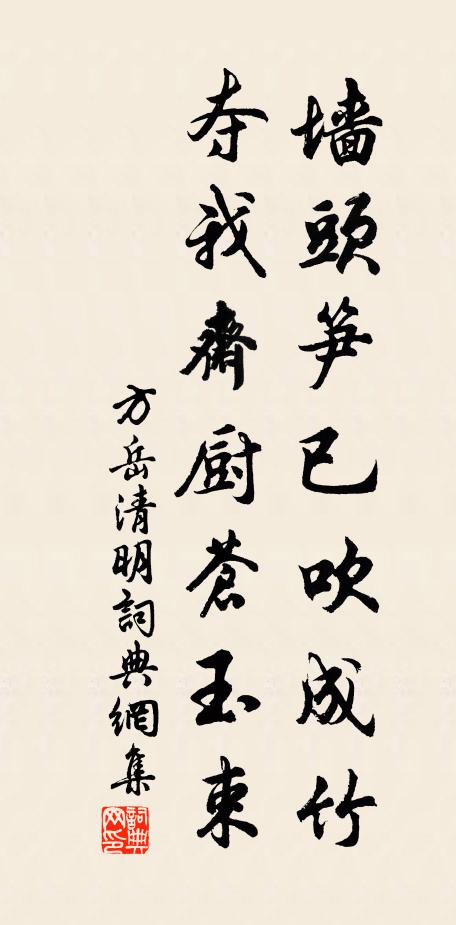 墙頭笋已吹成竹
夺我齋厨蒼玉束
方岳清明詞典網集
詞典网印